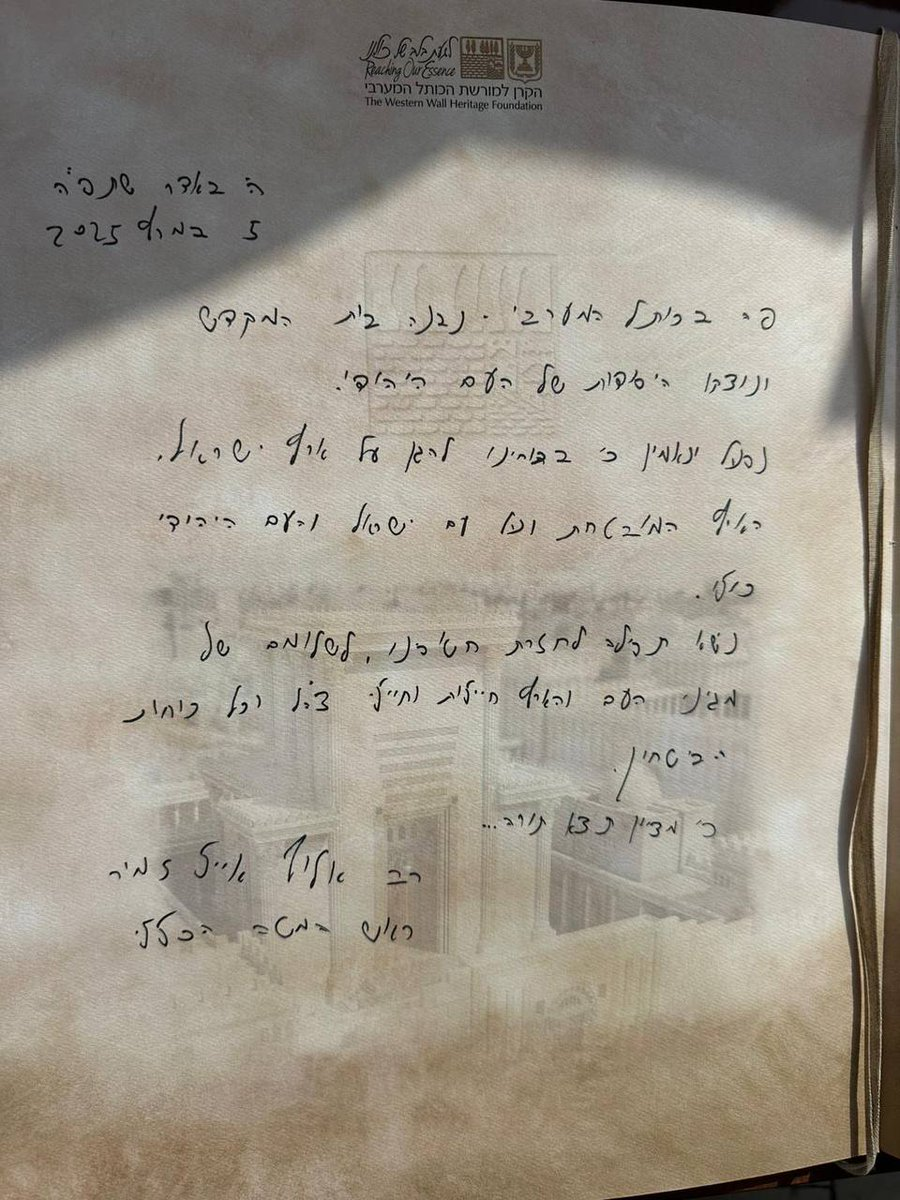 לגעת בלב של כולנו
Reaching Our Essence
הקרן למורשת הכותל המערבי
The Western Wall Heritage Foundation
ה' באדר תשפ"ה
5 במרץ 2025
פה בכותל המערבי - נבנה בית המקדש
ונוצקו היסודות של העם היהודי.
נפעל ונאמין כי בכוחינו להגן על ארץ ישראל,
הארץ המובטחת ועל עם ישראל והעם היהודי
כולו.
נישא תפילה לחזרת חטופינו, לשלומם של
מגיני העם והארץ חיילות וחיילי צה"ל וכל כוחות
הביטחון.
כי מציון תצא תורה...
רב אלוף אייל זמיר
ראש המטה הכללי